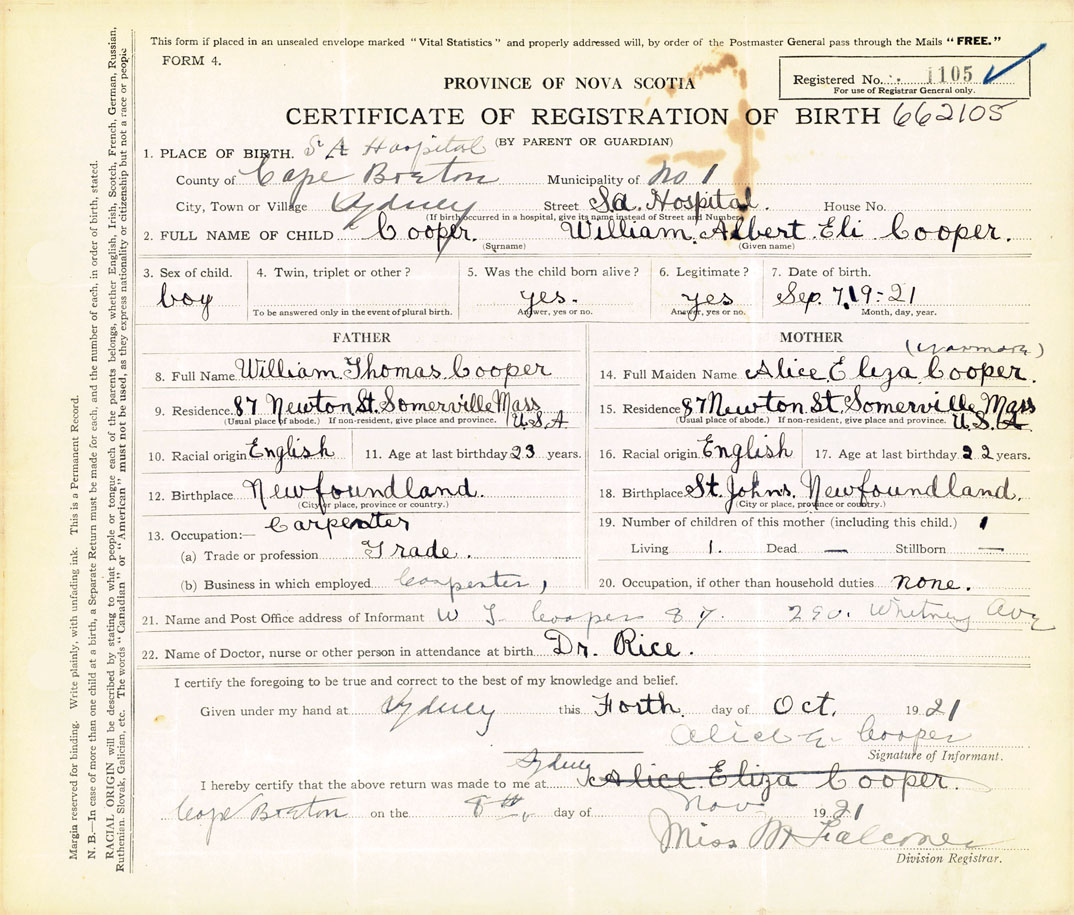 This form if placed in an unsealed envelope marked "Vital Statistics" and properly addressed will, by order of the Postmaster General pass through the Mails "FREE."
FORM 4.
PROVINCE OF NOVA SCOTIA
Registered No. 1105
For use of Registrar General only.
CERTIFICATE OF REGISTRATION OF BIRTH 662105
(BY PARENT OR GUARDIAN)
1. PLACE OF BIRTH. S A Hospital
County of Cape Breton Municipality of No 1
City, Town or Village Sydney Street Sa. Hospital. House No.
(If birth occurred in a hospital, give its name instead of Street and Number)
2. FULL NAME OF CHILD Cooper. William Albert Eli Cooper.
(Surname) (Given name)
3. Sex of child. 4. Twin, triplet or other? 5. Was the child born alive? 6. Legitimate? 7. Date of birth.
boy yes. yes Sep. 7. 19-21
To be answered only in the event of plural birth. Answer, yes or no. Answer, yes or no. Month, day, year.
FATHER
8. Full Name William Thomas Cooper
9. Residence 87 Newton St. Somerville Mass
(Usual place of abode.) If non-resident, give place and province. U.S.A
10. Racial origin English 11. Age at last birthday 23 years.
12. Birthplace Newfoundland.
(City or place, province or country.)
13. Occupation:— Carpenter
(a) Trade or profession Trade.
(b) Business in which employed Carpenter,
MOTHER
14. Full Maiden Name Alice Eliza Cooper.
15. Residence 87 Newton St. Somerville Mass
(Usual place of abode.) If non-resident, give place and province. U.S.A.
16. Racial origin English 17. Age at last birthday 22 years.
18. Birthplace St. Johns. Newfoundland.
(City or place, province or country.)
19. Number of children of this mother (including this child.) 1
Living 1. Dead — Stillborn —
20. Occupation, if other than household duties none.
21. Name and Post Office address of Informant W T Cooper 87. 290. Whitney Ave
22. Name of Doctor, nurse or other person in attendance at birth Dr. Rice.
I certify the foregoing to be true and correct to the best of my knowledge and belief.
Given under my hand at Sydney this Forth. day of Oct. 1921
Alice E Cooper
Signature of Informant.
Sydney
I hereby certify that the above return was made to me at Alice Eliza Cooper.
Cape Breton on the 8th day of Nov 1921
Miss M Falconer
Division Registrar.
Margin reserved for binding. Write plainly, with unfading ink. This is a Permanent Record.
N. B.—In case of more than one child at a birth, a Separate Return must be made for each, and the number of each, in order of birth, stated.
RACIAL ORIGIN will be described by stating to what people or tongue each of the parents belongs, whether English, Irish, Scotch, French, German, Russian,
Ruthenian, Slovak, Galician, etc. The words "Canadian" or "American" must not be used, as they express nationality or citizenship but not a race or people